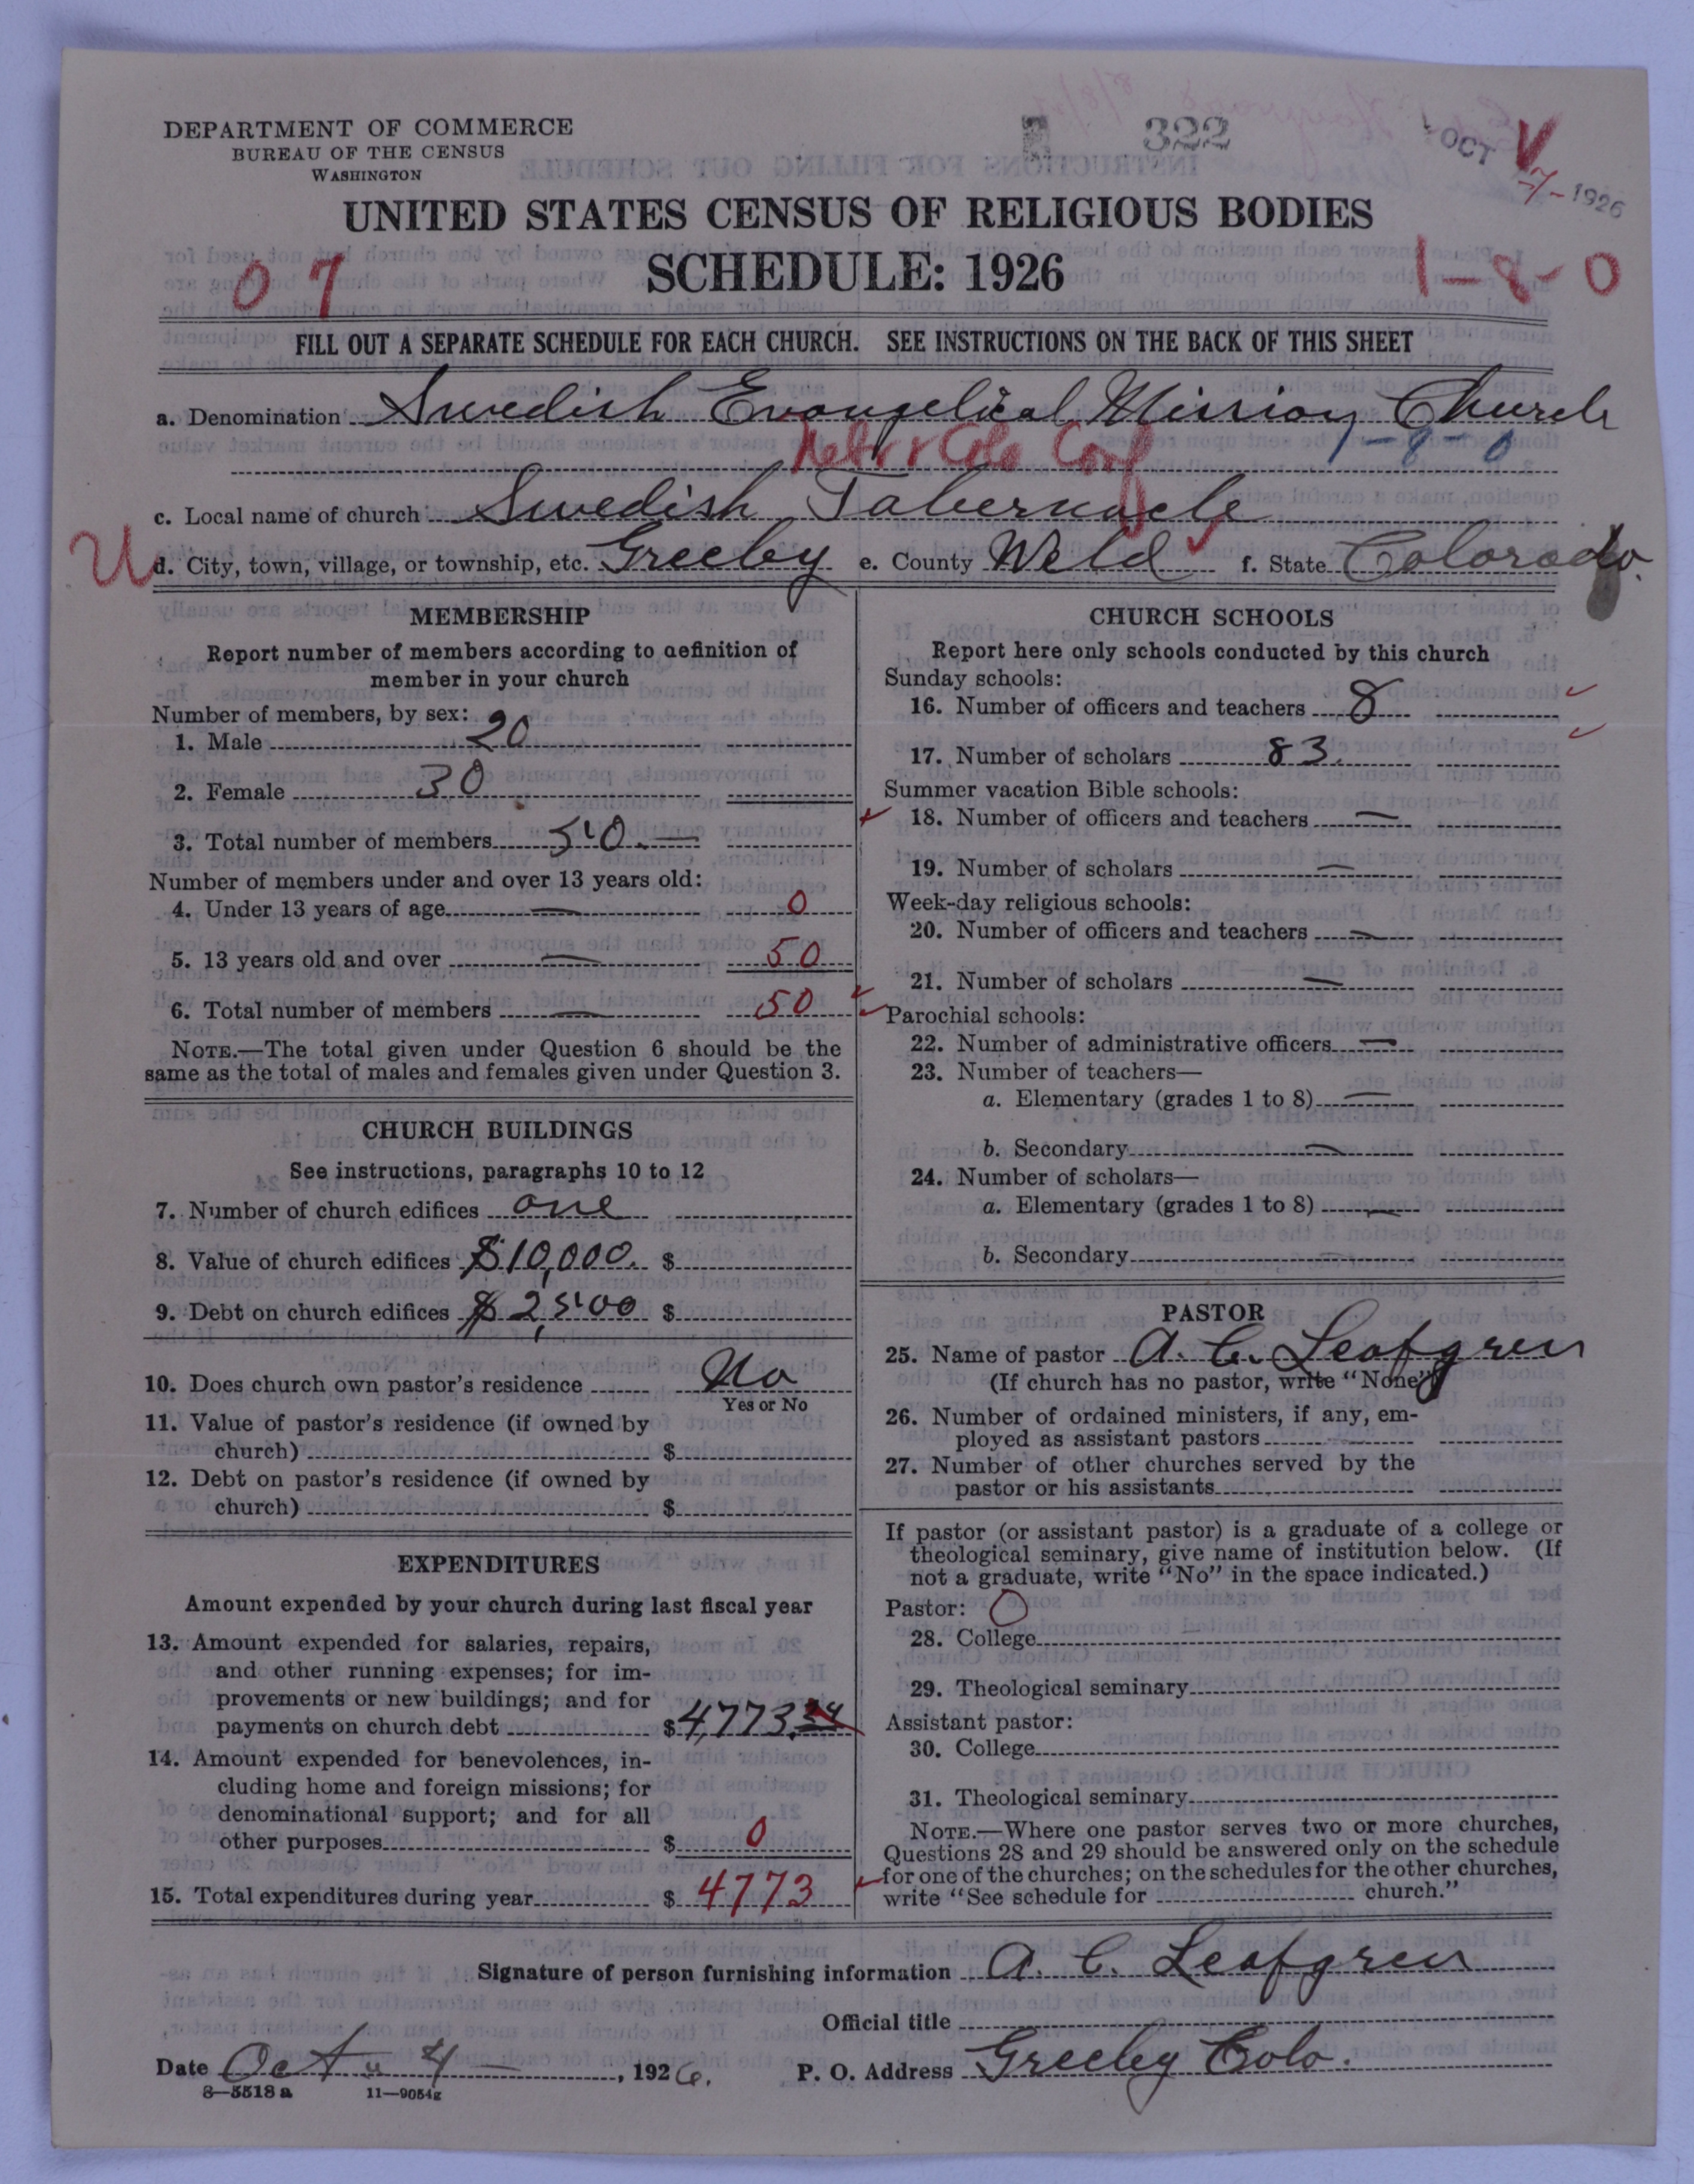 DEPARTMENT OF COMMERCE
BUREAU OF THE CENSUS
WASHINGTON
322
OCT 7- 1926
V
UNITED STATES CENSUS OF RELIGIOUS BODIES
SCHEDULE: 1926
07
1-8-0
FILL OUT A SEPARATE SCHEDULE FOR EACH CHURCH. SEE INSTRUCTIONS ON THE BACK OF THIS SHEET
a. Denomination Swedish Evangelical Mission Church
Nebr & Colo Conf 1-8-0
c. Local name of church Swedish Tabernacle
d. City, town, village, or township, etc. Greeley e. County Weld f. State Colorado.
MEMBERSHIP
Report number of members according to definition of
member in your church
Number of members, by sex:
1. Male 20
2. Female 30
3. Total number of members 50.—
Number of members under and over 13 years old:
4. Under 13 years of age — 0
5. 13 years old and over — 50
6. Total number of members — 50
NOTE.—The total given under Question 6 should be the
same as the total of males and females given under Question 3.
CHURCH BUILDINGS
See instructions, paragraphs 10 to 12
7. Number of church edifices one
8. Value of church edifices $10,000. $
9. Debt on church edifices $2,500 $
10. Does church own pastor's residence No
Yes or No
11. Value of pastor's residence (if owned by
church) $
12. Debt on pastor's residence (if owned by
church) $
EXPENDITURES
Amount expended by your church during last fiscal year
13. Amount expended for salaries, repairs,
and other running expenses; for im-
provements or new buildings; and for
payments on church debt $4,773.34
14. Amount expended for benevolences, in-
cluding home and foreign missions; for
denominational support; and for all
other purposes $ 0
15. Total expenditures during year $ 4773
CHURCH SCHOOLS
Report here only schools conducted by this church
Sunday schools:
16. Number of officers and teachers 8
17. Number of scholars 83.
Summer vacation Bible schools:
18. Number of officers and teachers —
19. Number of scholars —
Week-day religious schools:
20. Number of officers and teachers —
21. Number of scholars —
Parochial schools:
22. Number of administrative officers —
23. Number of teachers—
a. Elementary (grades 1 to 8) —
b. Secondary —
24. Number of scholars—
a. Elementary (grades 1 to 8) —
b. Secondary —
PASTOR
25. Name of pastor A. C. Leafgren
(If church has no pastor, write "None")
26. Number of ordained ministers, if any, em-
ployed as assistant pastors
27. Number of other churches served by the
pastor or his assistants
If pastor (or assistant pastor) is a graduate of a college or
theological seminary, give name of institution below. (If
not a graduate, write "No" in the space indicated.)
Pastor: O
28. College
29. Theological seminary
Assistant pastor:
30. College
31. Theological seminary
NOTE.—Where one pastor serves two or more churches,
Questions 28 and 29 should be answered only on the schedule
for one of the churches; on the schedules for the other churches,
write "See schedule for church."
Signature of person furnishing information A. C. Leafgren
Official title
Date Oct. 4 —, 1926. P. O. Address Greeley Colo.
8—5518 a 11—9054g